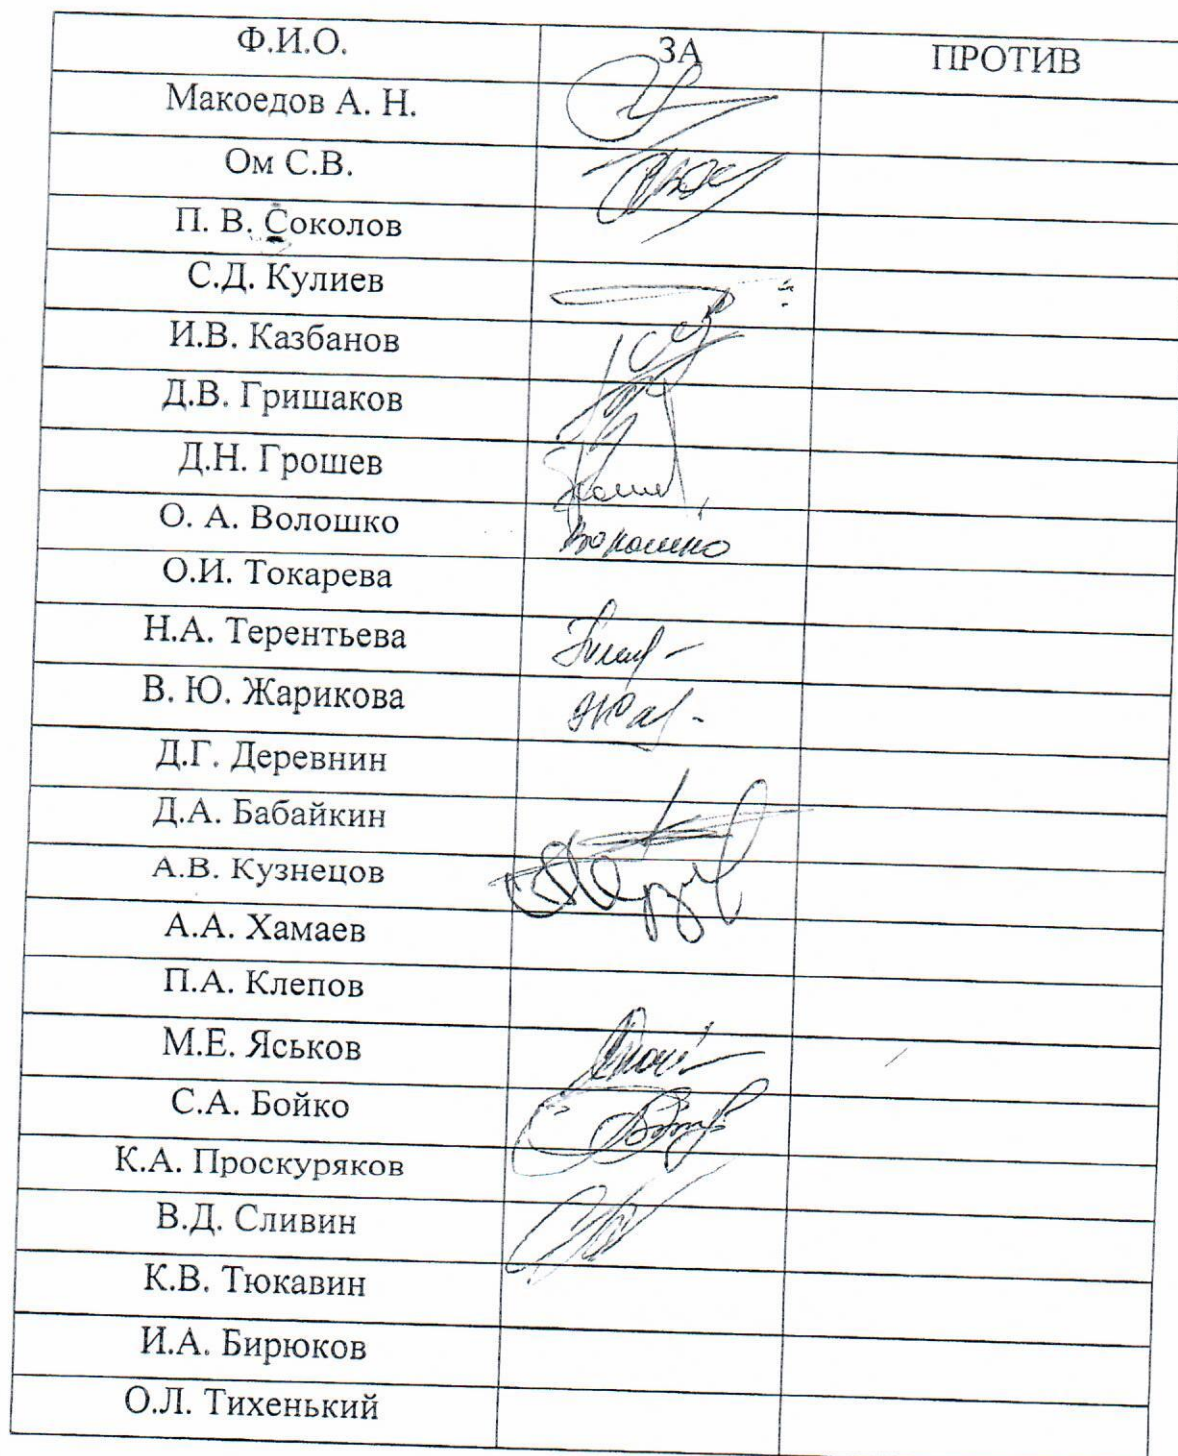 Ф.И.О. ЗА ПРОТИВ
Макоедов А. Н.
Ом С.В.
П. В. Соколов
С.Д. Кулиев
И.В. Казбанов
Д.В. Гришаков
Д.Н. Грошев
О. А. Волошко Волошко
О.И. Токарева
Н.А. Терентьева
В. Ю. Жарикова
Д.Г. Деревнин
Д.А. Бабайкин
А.В. Кузнецов
А.А. Хамаев
П.А. Клепов
М.Е. Яськов
С.А. Бойко
К.А. Проскуряков
В.Д. Сливин
К.В. Тюкавин
И.А. Бирюков
О.Л. Тихенький